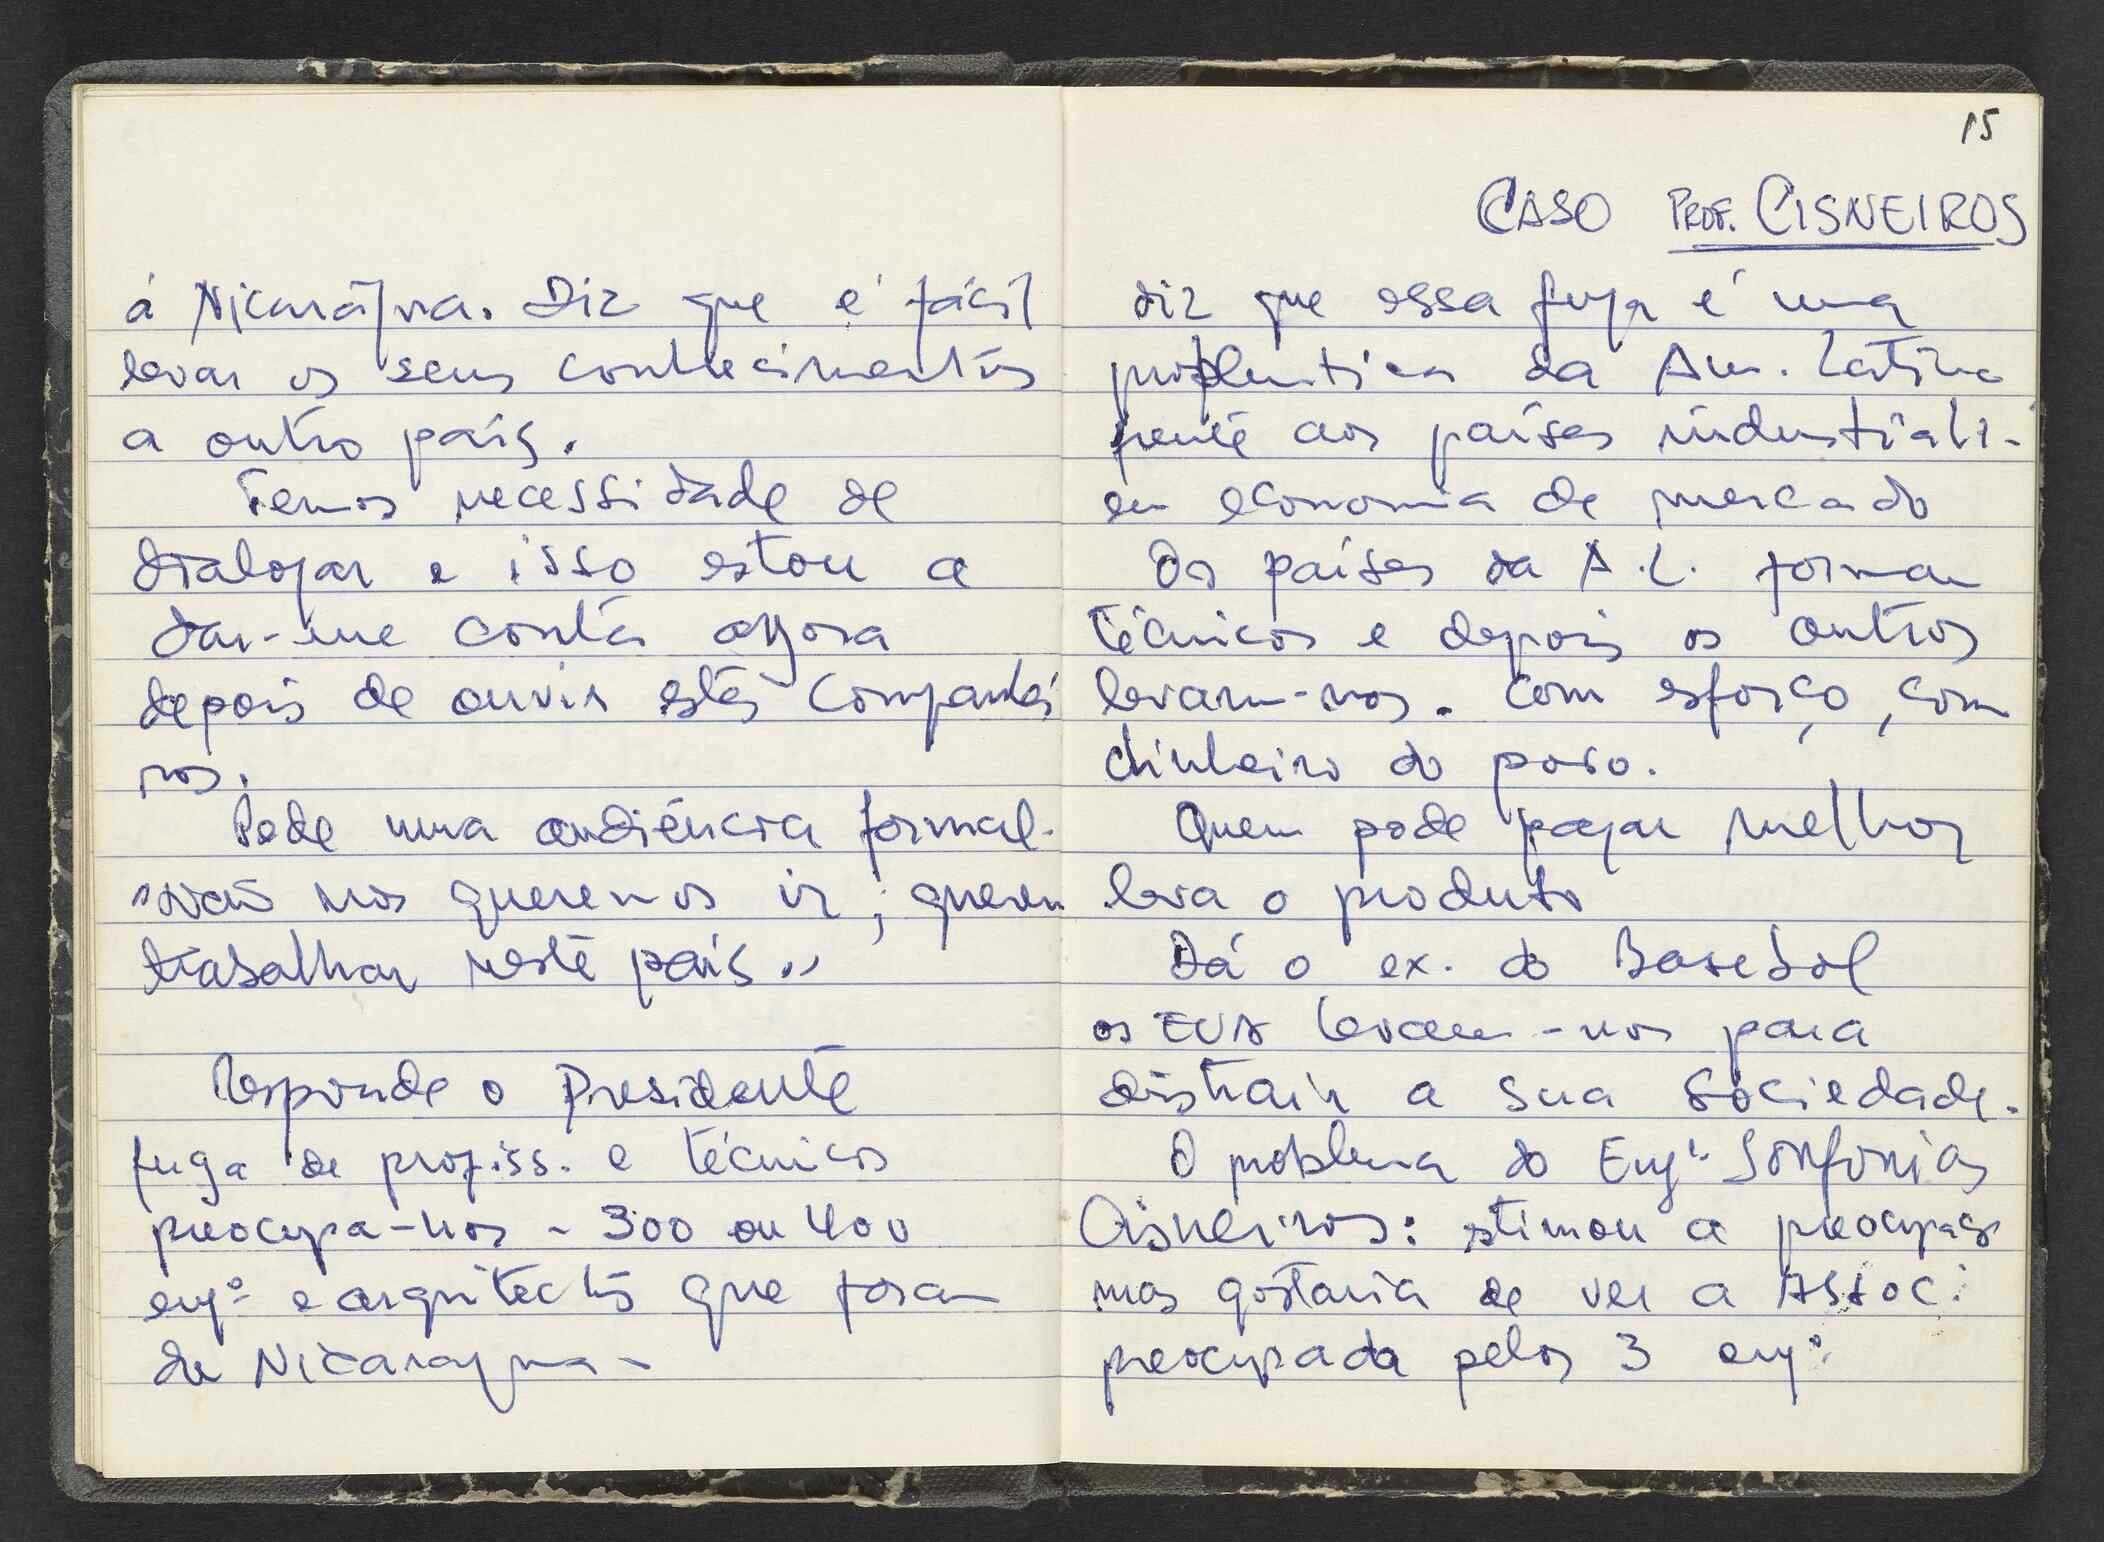 á Nicarágua. Diz que é fácil
levar os seus conhecimentos
a outro país.
Temos necessidade de
dialogar e isso estou a
dar-me conta agora
depois de ouvir estes companhei
ros.
Pede uma audiência formal.
"não nos queremos ir; querem
trabalhar neste país"
Responde o Presidente
fuga de profiss. e técnicos
preocupa-nos - 300 ou 400
engº e arquitectos que foram
de Nicaragua -
15
CASO PROF. CISNEIROS
diz que essa fuga é uma
da Am. Latina
frente aos países industriali-
em economia de mercado
Os países da A.L. formam
técnicos e depois os outros
levam-nos. Com esforço, com
dinheiro do povo.
Quem pode pagar melhor
leva o produto
Dá o ex. do Basebol
os EUA levam-nos para
distrair a sua sociedade.
O problema do Engº
Cisneiros: stimou a
mas gostaria de ver a Assoc.
preocupada pelos 3 engº